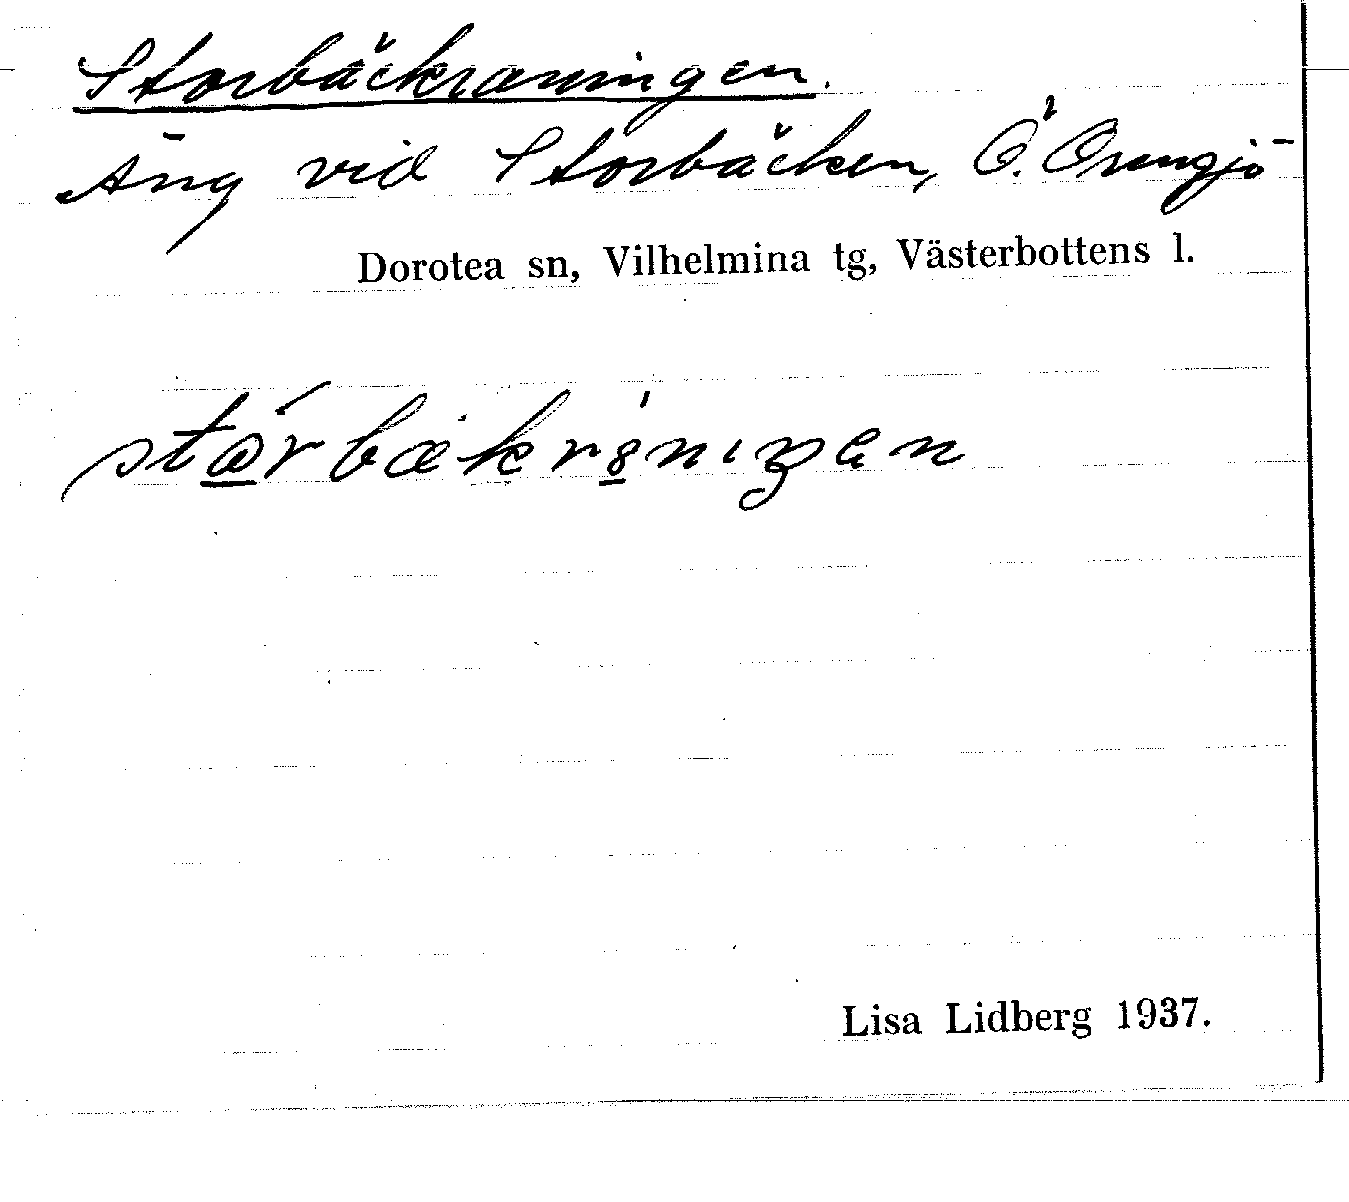 Storbäckraningen.
Äng vid Storbäcken, Ö. Ormsjö
Dorotea sn, Vilhelmina tg, Västerbottens l.
Lisa Lidberg 1937.